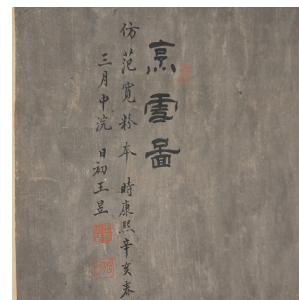 烹雪圖
仿范寬粉本 時康熙辛亥春
三月中浣 日初王昱